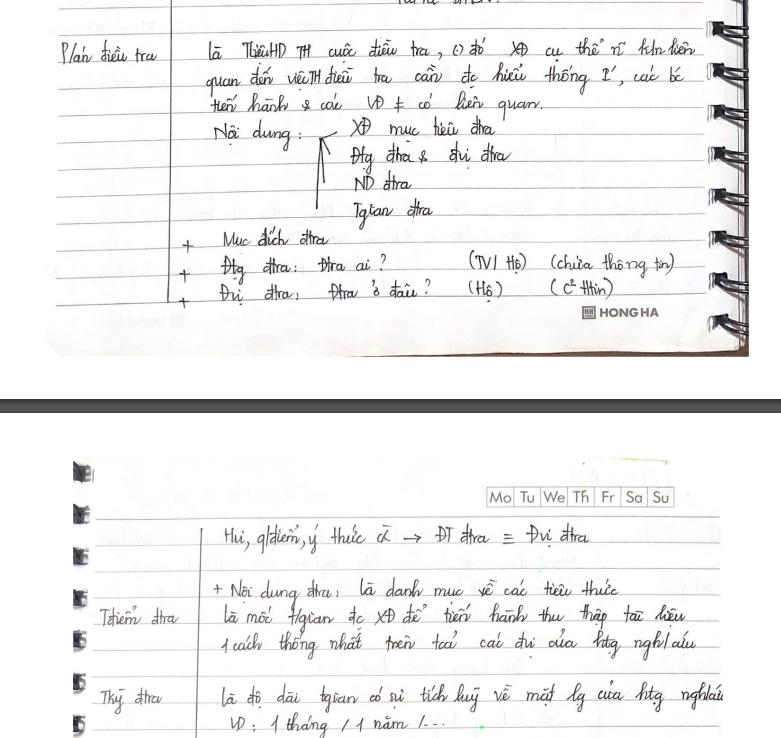 Plán điều tra
là TliệuHD TH cuộc điều tra, (.) đó XĐ cụ thể n~ kln liên
quan đến việcTH điều tra cần đc hiểu thống I', các bc
tiến hành & các VĐ ≠ có liên quan.
Nội dung: XĐ mục tiêu đtra
Đtg đtra & đvi đtra
ND đtra
Tgian đtra
+ Mục đích đtra
+ Đtg đtra: Đtra ai? (TV/ Hộ) (chứa thông tin)
+ Đvị đtra: Đtra ở đâu? (Hộ) (C² ttin)
HONG HA
Mo Tu We Th Fr Sa Su
q/điểm, ý thức → ĐT đtra ≡ Đvị đtra
+ Nội dung đtra: là danh mục về các tiêu thức
Tđiểm đtra
là mốc t/gian đc XĐ để tiến hành thu thập tài liệu
1 cách thống nhất trên toả các đvi của htg nghl cứu
Tkỳ đtra
là độ dài tgian có sự tích luỹ về mặt lg của htg nghl cứu
VD: 1 tháng / 1 năm /...